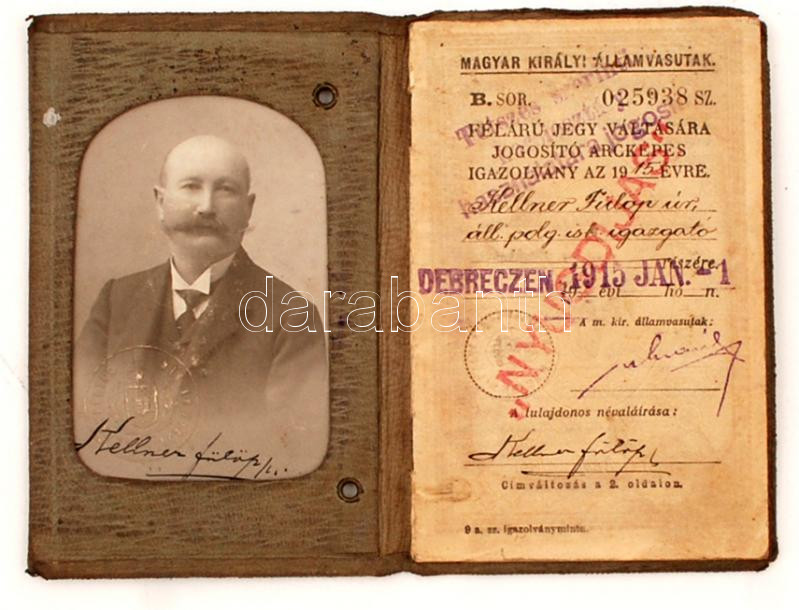 Kellner Fülöp
MAGYAR KIRÁLYI ÁLLAMVASUTAK.
B. SOR. 025938 SZ.
FÉLÁRÚ JEGY VÁLTÁSÁRA
JOGOSÍTÓ ARCKÉPES
IGAZOLVÁNY AZ 1915 ÉVRE.
Kellner Fülöp úr,
áll. polg. isk. igazgató
részére.
DEBRECZEN 1915 JAN. -1
19 évi hó n.
A m. kir. államvasutak:
NYUGDIJAS
A tulajdonos névaláírása:
Kellner Fülöp
Címváltozás a 2. oldalon.
9 a. sz. igazolványminta.
darabanth